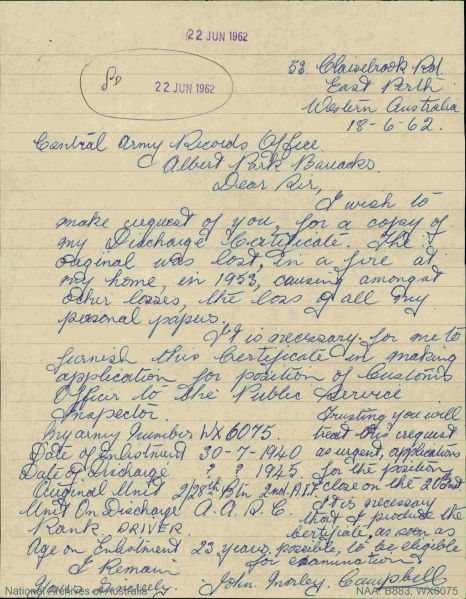 22 JUN 1962
22 JUN 1962
53, Claisebrook Rd
East Perth
Western Australia
18-6-62.
Central Army Records Office.
Albert Park Barracks.
Dear Sir,
I wish to
make request of you, for a copy of
my Discharge Certificate. The
original was lost, in a fire at
my home, in 1953, causing amongst
other losses, the loss of all my
personal papers.
It is necessary for me to
furnish this Certificate in making
application for position of Customs
Officer to the Public Service
Inspector.
Trusting you will
My army Number WX6075.
treat this request
Date of Enlistment 30-7-1940
as urgent, applications
Date of Discharge ? ? 1945
for the position
Original Unit 2/28th Btn 2nd A.I.F.
close on the 20th inst
Unit On Discharge A.A.S.C.
It is necessary
that I produce the
Rank DRIVER.
certificate, as soon as
Age on Enlistment 23 years.
possible, to be eligible
for examination.
I Remain
Yours Sincerely.
John Morley Campbell
National Archives of Australia
NAA: B883, WX6075